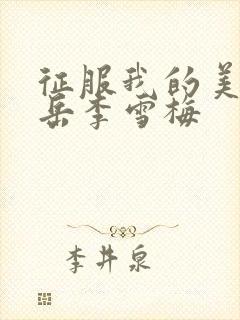 征服我的美
岳李雪梅
李井泉